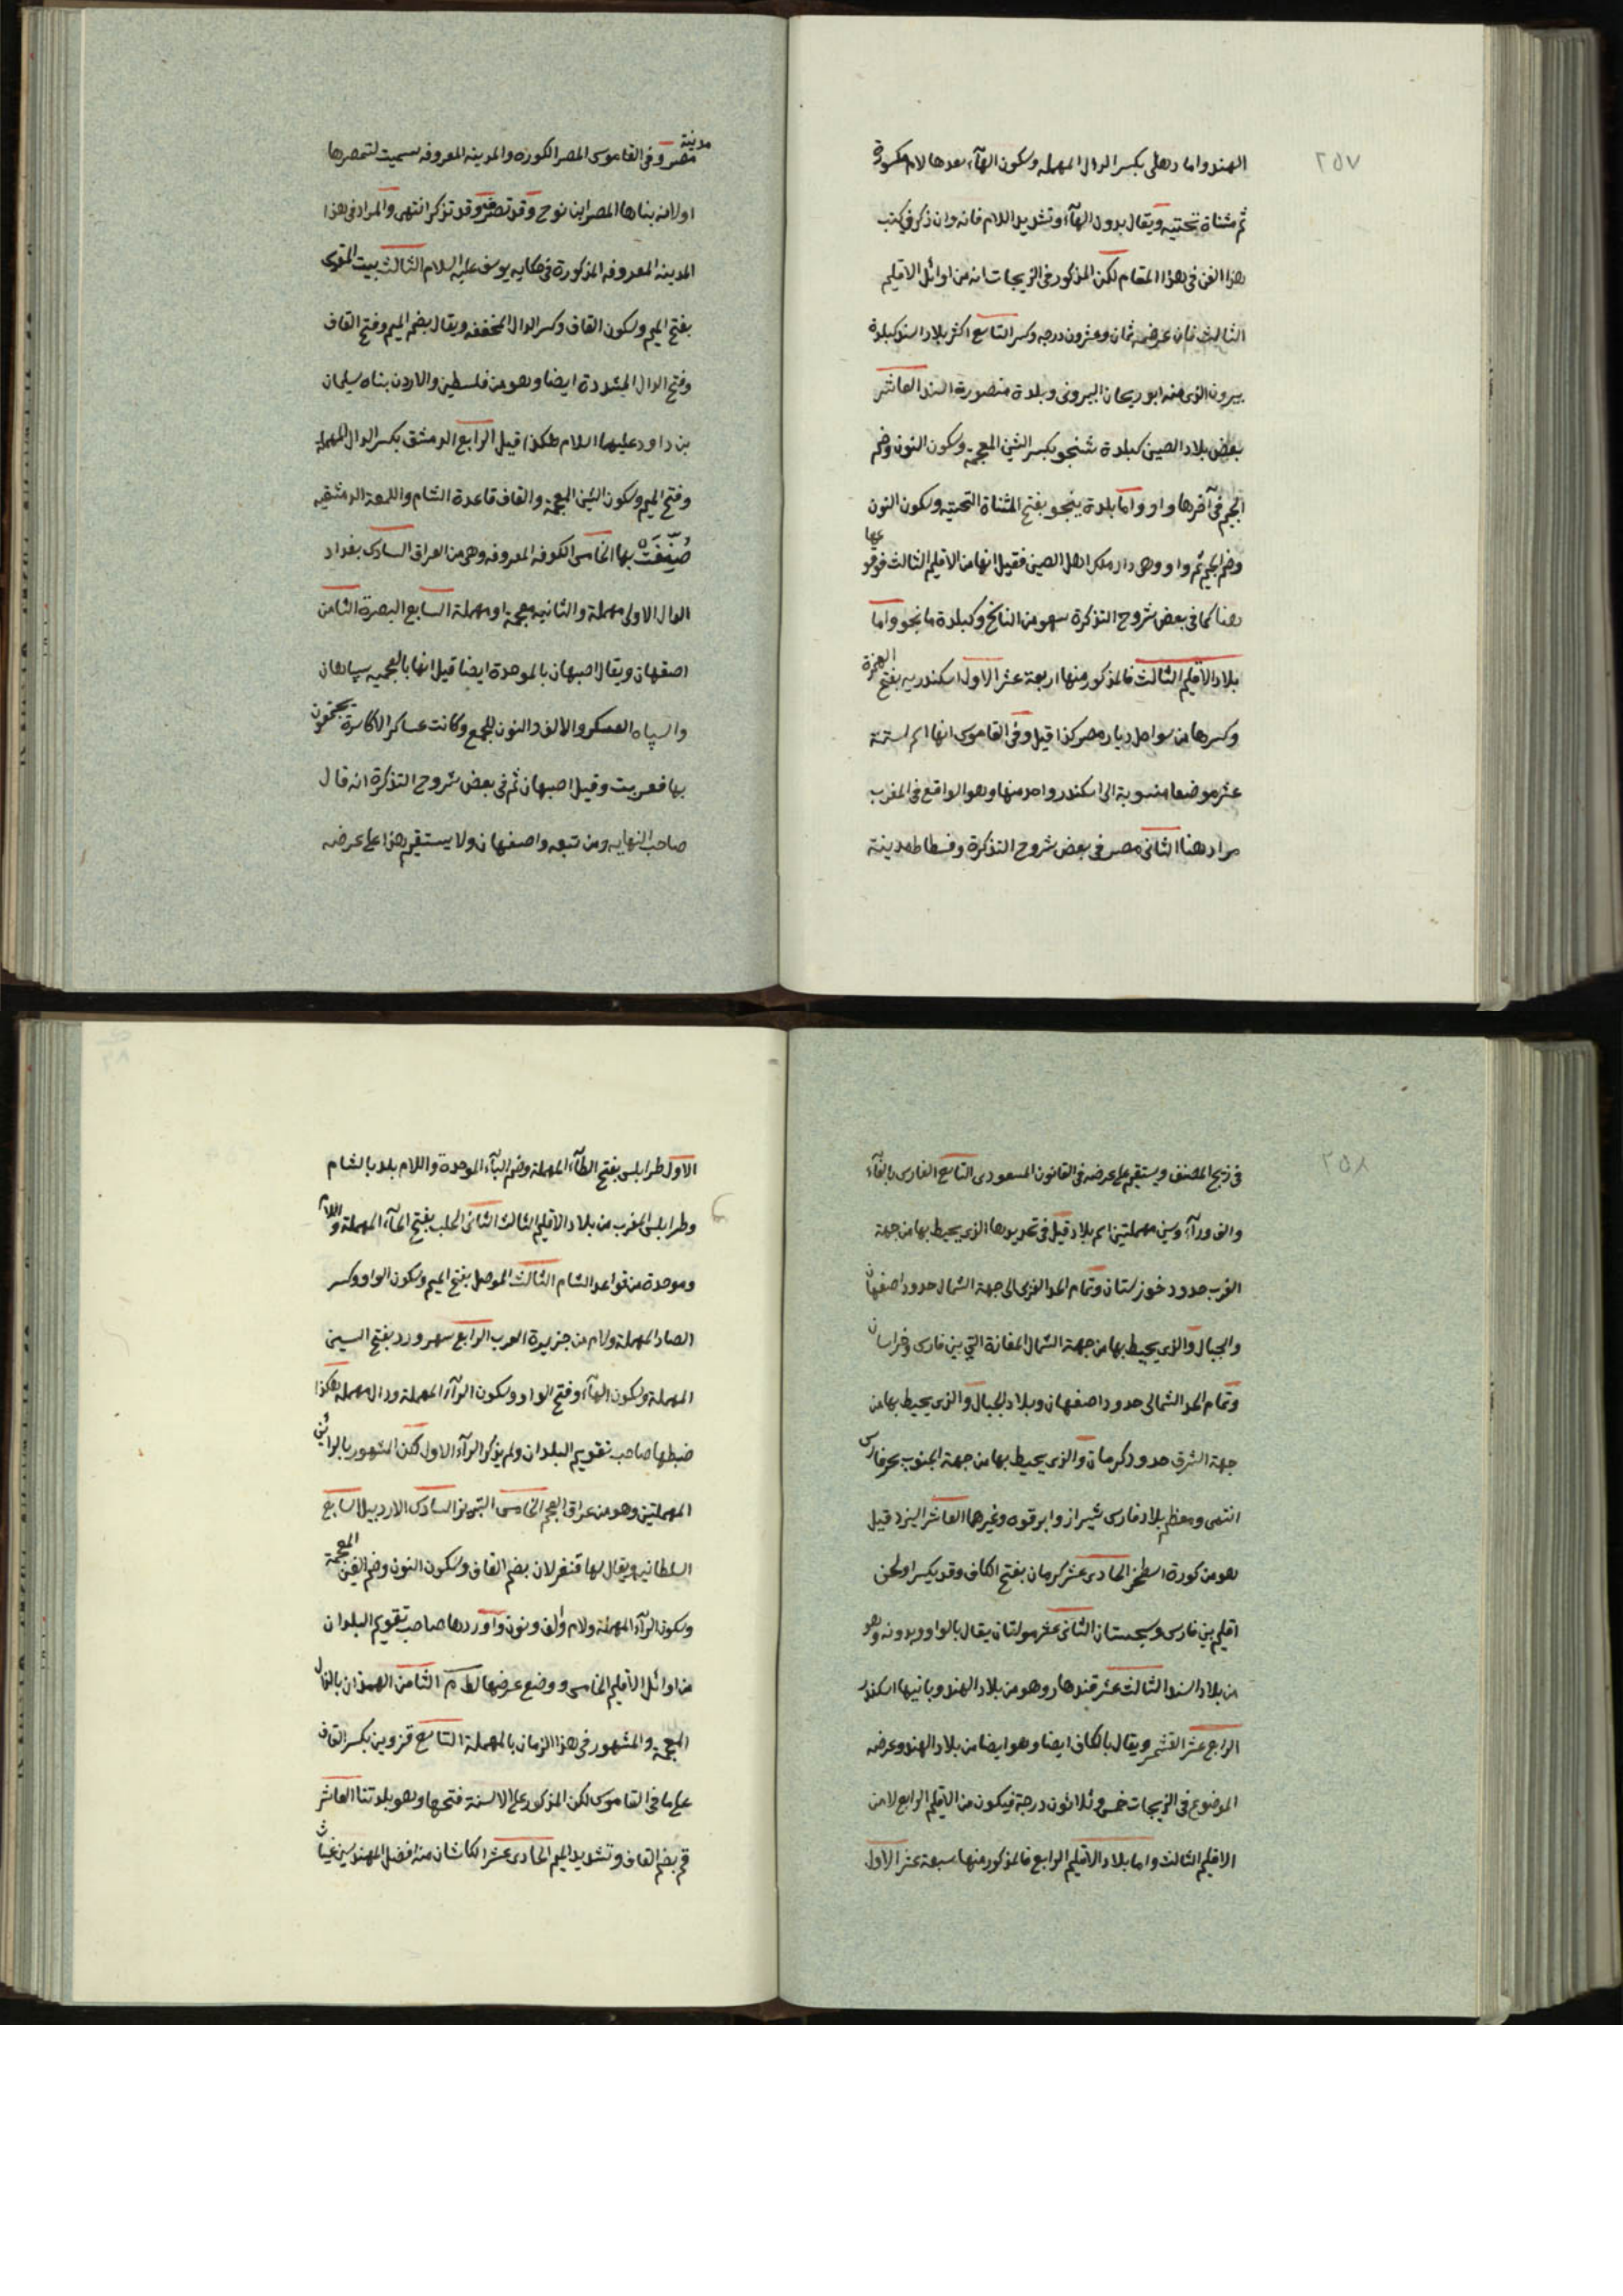 ٢٥٧
الهند واما دهلى بكسر الدال المهمله وسكون الهآء بعدها لام مكسورة
ثم مثناة تحتيه ويقال بدون الهآء وتشديد اللام فانه وان ذكر فى كتب
هذا الفن فى هذا المقام لكن المذكور فى الزيجات انه من اوائل الاقليم
الثالث فان عرضه ثمان وعشرون درجه وكسر التاسع اكثر بلاد السند كبلدة
بيرون الذى منه ابو ريحان البيرونى وبلدة منصورة السند العاشر
بعض بلاد الصين كبلدة شنجو بكسر الشين المعجمة وسكون النون وضم
الجيم فى آخرها واو واما بلدة ينجو بفتح المثناة التحتيه وسكون النون
وضم الجيم ثم واو وهى دار ملك اهل الصين فقيل انها من الاقليم الثالث فوقوعها
هنا كما فى بعض شروح التذكرة سهو من الناسخ وكبلدة مانجو واما
بلاد الاقليم الثالث فالمذكور منها اربعة عشر الاول اسكندريه بفتح الهمزة
وكسرها من سواحل ديار مصر كذا قيل وفى القاموس انها اسم لستة
عشر موضعا منسوبة الى اسكندر واحد منها وهو الواقع فى المغرب
مراد هنا الثانى مصر فى بعض شروح التذكرة وفسطاط مدينة
مدينة
مصر وفى القاموس المصر الكوره والمدينه المعروفه سميت لتمصرها
اولانه بناها المصر ابن نوح وقد تصرف وقد تذكر انتهى والمراد فى هذا
المدينه المعروفه المذكورة فى حكايه يوسف عليه السلام الثالث بيت المقدس
بفتح الميم وسكون القاف وكسر الدال المخففه ويقال بضم الميم وفتح القاف
وفتح الدال المشددة ايضا وهو من فلسطين والاردن بناه سليمان
بن داود عليهما السلام هكذا قيل الرابع الدمشق بكسر الدال المهمله
وفتح الميم وسكون الشين المعجمة والقاف قاعدة الشام واللمعة الدمشقيه
صُنِّفَتْ بها الخامس الكوفه المعروفه وهى من العراق السادس بغداد
الدال الاولى مهملة والثانيه معجمة او مهملة السابع البصرة الثامن
اصفهان ويقال اصبهان بالموحدة ايضا قيل انها بالعجميه سپاهان
والسپاه العسكر والالف والنون للجمع وكانت عساكر الاكاسرة يجتمعون
بها فعربت وقيل اصبهان ثم فى بعض شروح التذكرة انه قال
صاحب النهايه ومن تبعه واصفهان ولا يستقيم هذا على عرضه
٢٥٨
فى زيج المصنف ويستقيم على عرضه فى القانون المسعودى التاسع الفارس بالفآء
والف ورآء وسين مهملتين اسم بلاد قيل فى تحديدها الذى يحيط بها من جهة
الغرب حدود خوزستان وتمام الحد الغربى الى جهة الشمال حدود اصفهان
والجبال والذى يحيط بها من جهة الشمال المفازة التى بين فارس وخراسان
وتمام الحد الشمالى حدود اصفهان وبلاد الجبال والذى يحيط بها من
جهة الشرق حدود كرمان والذى يحيط بها من جهة الجنوب بحر فارس
انتهى ومعظم بلاد فارس شيراز وابرقوه وغيرها العاشر اليزد قيل
هو من كورة اسطخر الحادى عشر كرمان بفتح الكاف وقد يكسر اولحن
اقليم بين فارس وسجستان الثانى عشر مولتان يقال بالواو وبدونه وهو
من بلاد السند الثالث عشر قندهار وهو من بلاد الهند وبانيها اسكندر
الرابع عشر القشمير ويقال بالكاف ايضا وهو ايضا من بلاد الهند وعرضه
الموضوع فى الزيجات خمس وثلاثون درجة فيكون من الاقليم الرابع لا من
الاقليم الثالث واما بلاد الاقليم الرابع فالمذكور منها سبعة عشر الاول
الاول طرابلس بفتح الطآء المهملة وضم البآء الموحدة واللام بلد بالشام
وطرابلس الغرب من بلاد الاقليم الثالث الثانى الحلب بفتح الحآء المهملة واللام
وموحدة من قواعد الشام الثالث الموصل بفتح الميم وسكون الواو وكسر
الصاد المهملة ولام من جزيرة العرب الرابع سهرورد بفتح السين
المهملة وسكون الهآء وفتح الواو وسكون الرآء المهملة ودال مهملة هكذا
ضبطها صاحب تقويم البلدان ولم يذكر الرآء الاول لكن المشهور بالرائين
المهملتين وهو من عراق العجم الخامس التبريز السادس الاردبيل السابع
السلطانيه ويقال لها قنغرلان بضم القاف وسكون النون وضم الغين المعجمة
وسكون الرآء المهملة ولام والف ونون واوردها صاحب تقويم البلدان
من اوائل الاقليم الخامس ووضع عرضها لط م الثامن الهمذان بالذال
المعجمة والمشهور فى هذا الزمان بالمهملة التاسع قزوين بكسر القاف
على ما فى القاموس لكن المذكور على الالسنة فتحها وهو بلدتنا العاشر
قم بضم القاف وتشديد الميم الحادى عشر الكاشان منه افضل المهندسين غياث